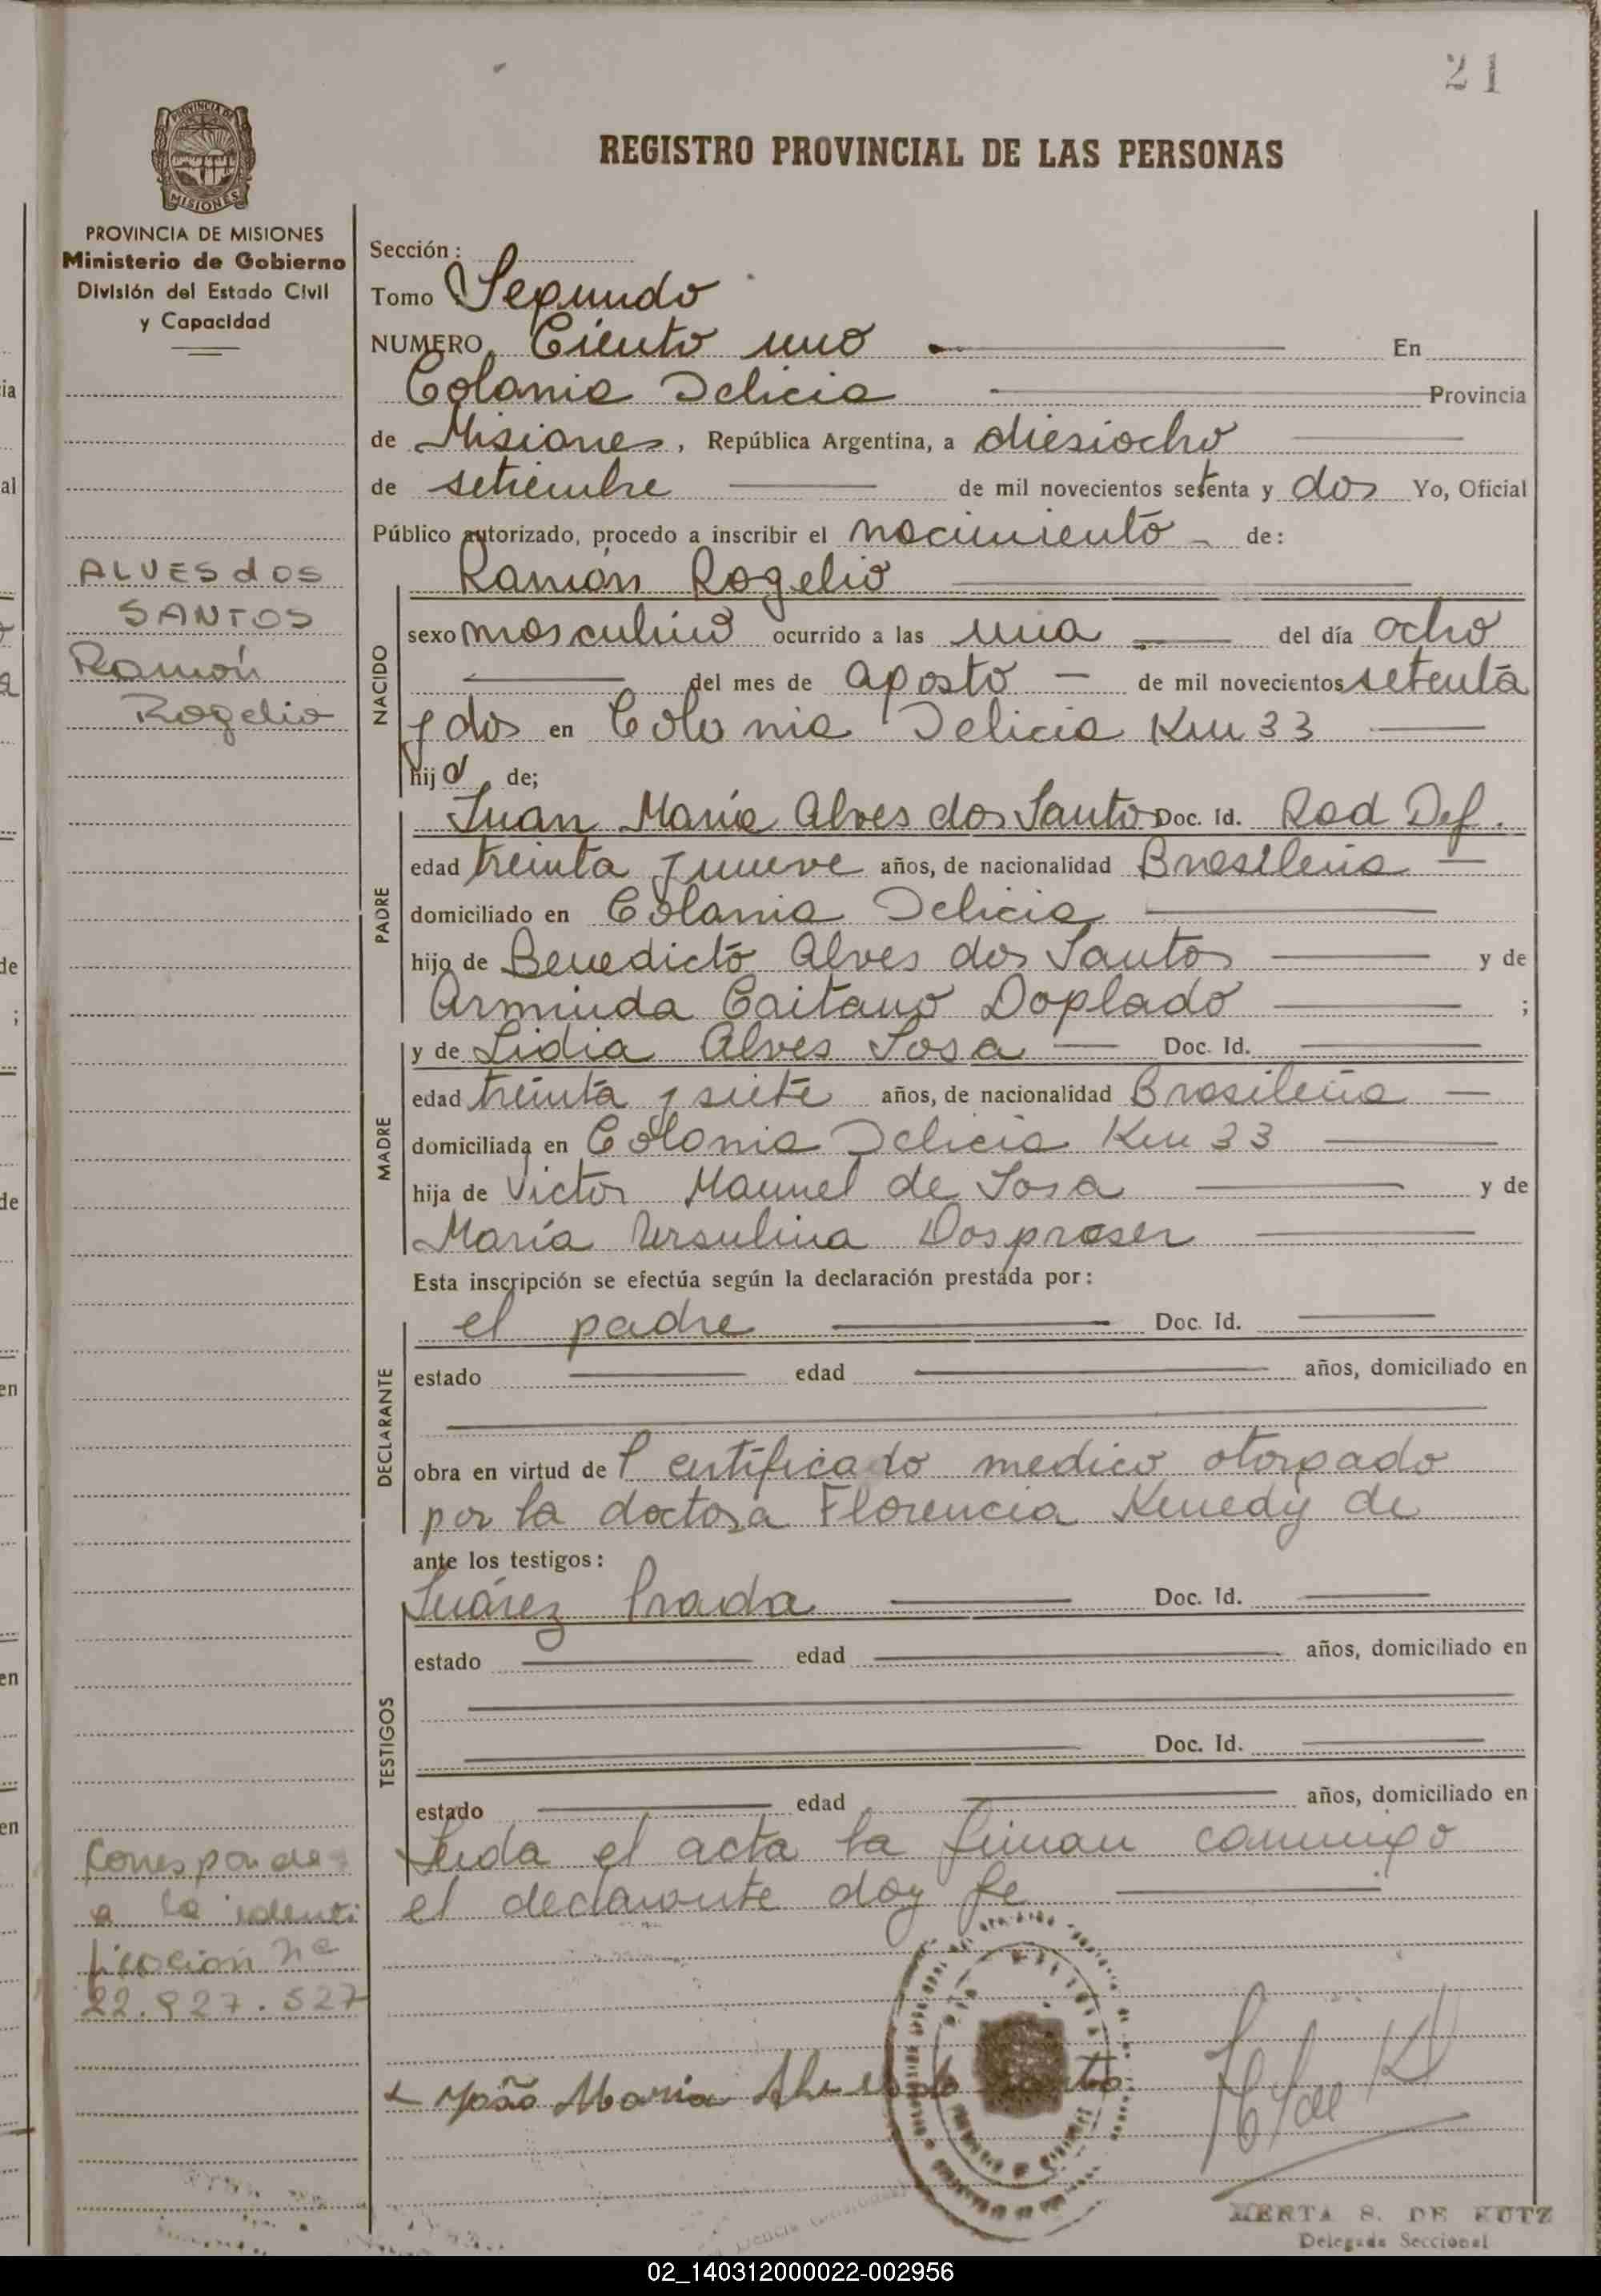 21
PROVINCIA DE
MISIONES
REGISTRO PROVINCIAL DE LAS PERSONAS
PROVINCIA DE MISIONES
Ministerio de Gobierno
División del Estado Civil
y Capacidad
ALVES dos
SANTOS
Ramón
Rogelio
Corresponde
a la identi
ficacion No
22.827.527
Sección :
Tomo : Segundo
NUMERO Ciento uno En
Colonia Delicia Provincia
de Misiones, República Argentina, a diesiocho
de setiembre de mil novecientos setenta y dos Yo, Oficial
Público autorizado, procedo a inscribir el nacimiento de:
Ramón Rogelio
NACIDO
sexo masculino ocurrido a las una del día ocho
del mes de agosto de mil novecientos setenta
y dos en Colonia Delicia Km 33
hijo de;
PADRE
Juan María Alves dos Santos Doc. Id. Rad Def.
edad treinta y nueve años, de nacionalidad Brasileña
domiciliado en Colonia Delicia
hijo de Benedicto Alves dos Santos y de
Arminda Caitano Doplado ;
MADRE
y de Lidia Alves Sosa Doc. Id.
edad treinta y siete años, de nacionalidad Brasileña
domiciliada en Colonia Delicia Km 33
hija de Victor Manuel de Sosa y de
María Ursulina Dospraser
Esta inscripción se efectúa según la declaración prestada por:
DECLARANTE
el padre Doc. Id.
estado edad años, domiciliado en
obra en virtud de Certificado medico otorgado
por la doctora Florencia Kenedy de
ante los testigos:
TESTIGOS
Suárez Prada Doc. Id.
estado edad años, domiciliado en
Doc. Id.
estado edad años, domiciliado en
Leida el acta la firman conmigo
el declarante doy fe
João Maria
S. DE KUTZ
Delegada Seccional
02_140312000022-002956